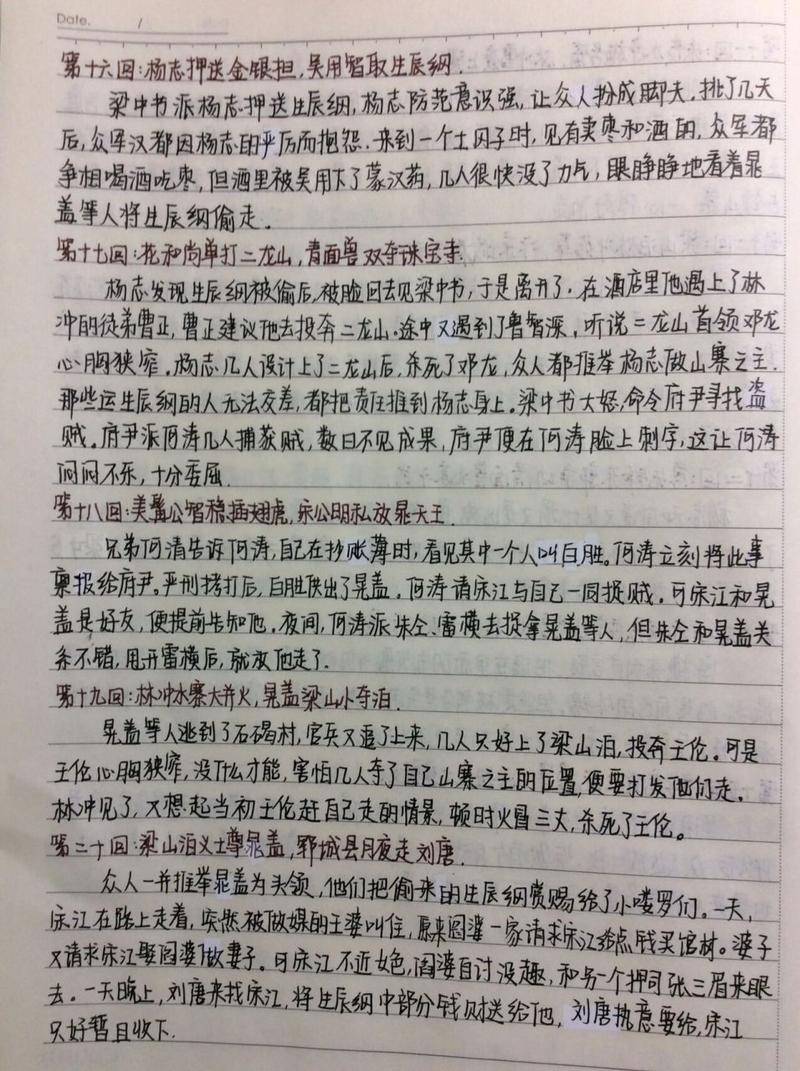 Date. /
第十六回:杨志押送金银担,吴用智取生辰纲.
梁中书派杨志押送生辰纲,杨志防范意识强,让众人扮成脚夫.挑了几天
后,众军汉都因杨志的严厉而抱怨.来到一个土冈子时,见有卖枣和酒的,众军都
争相喝酒吃枣,但酒里被吴用下了蒙汉药,几人很快没了力气,眼睁睁地看着晁
盖等人将生辰纲偷走.
第十七回:花和尚单打二龙山,青面兽双夺珠宝寺.
杨志发现生辰纲被偷后,被脸回去见梁中书,于是离开了.在酒店里他遇上了林
冲的徒弟曹正,曹正建议他去投奔二龙山.途中又遇到了鲁智深,听说二龙山首领邓龙
心胸狭窄.杨志几人设计上了二龙山后,杀死了邓龙,众人都推举杨志做山寨之主.
那些运生辰纲的人无法交差,都把责任推到杨志身上。梁中书大怒,命令府尹寻找盗
贼.府尹派何涛几人捕获贼,数日不见成果,府尹便在何涛脸上刺字,这让何涛
闷闷不乐,十分委屈.
第十八回:美髯公智稳插翅虎,宋公明私放晁天王.
兄弟何清告诉何涛,自己在抄账薄时,看见其中一个人叫白胜.何涛立刻将此事
禀报给府尹。严刑拷打后,白胜供出了晁盖.何涛请宋江与自己一同捉贼.可宋江和晁
盖是好友,便提前告知他.夜间,何涛派朱仝、雷横去捉拿晁盖等人,但朱仝和晁盖关
系不错,甩开雷横后,就放他走了.
第十九回:林冲水寨大并火,晁盖梁山小夺泊.
晁盖等人逃到了石碣村,官兵又追了上来,几人只好上了梁山泊,投奔王伦.可是
王伦心胸狭窄,没什么才能,害怕几人夺了自己山寨之主的位置,便要打发他们走.
林冲见了,又想起当初王伦赶自己走的情景,顿时火冒三丈,杀死了王伦。
第二十回:梁山泊义士尊晁盖,郓城县月夜走刘唐.
众人一并推举晁盖为头领,他们把偷来的生辰纲赏赐给了小喽罗们.一天,
宋江在路上走着,突然被做媒的王婆叫住,原来阎婆一家请求宋江给点钱买棺材.婆子
又请求宋江娶阎婆做妻子.可宋江不近女色,阎婆自讨没趣,和另一个押司张三眉来眼
去.一天晚上,刘唐来找宋江,将生辰纲中部分钱财送给他,刘唐执意要给,宋江
只好暂且收下.